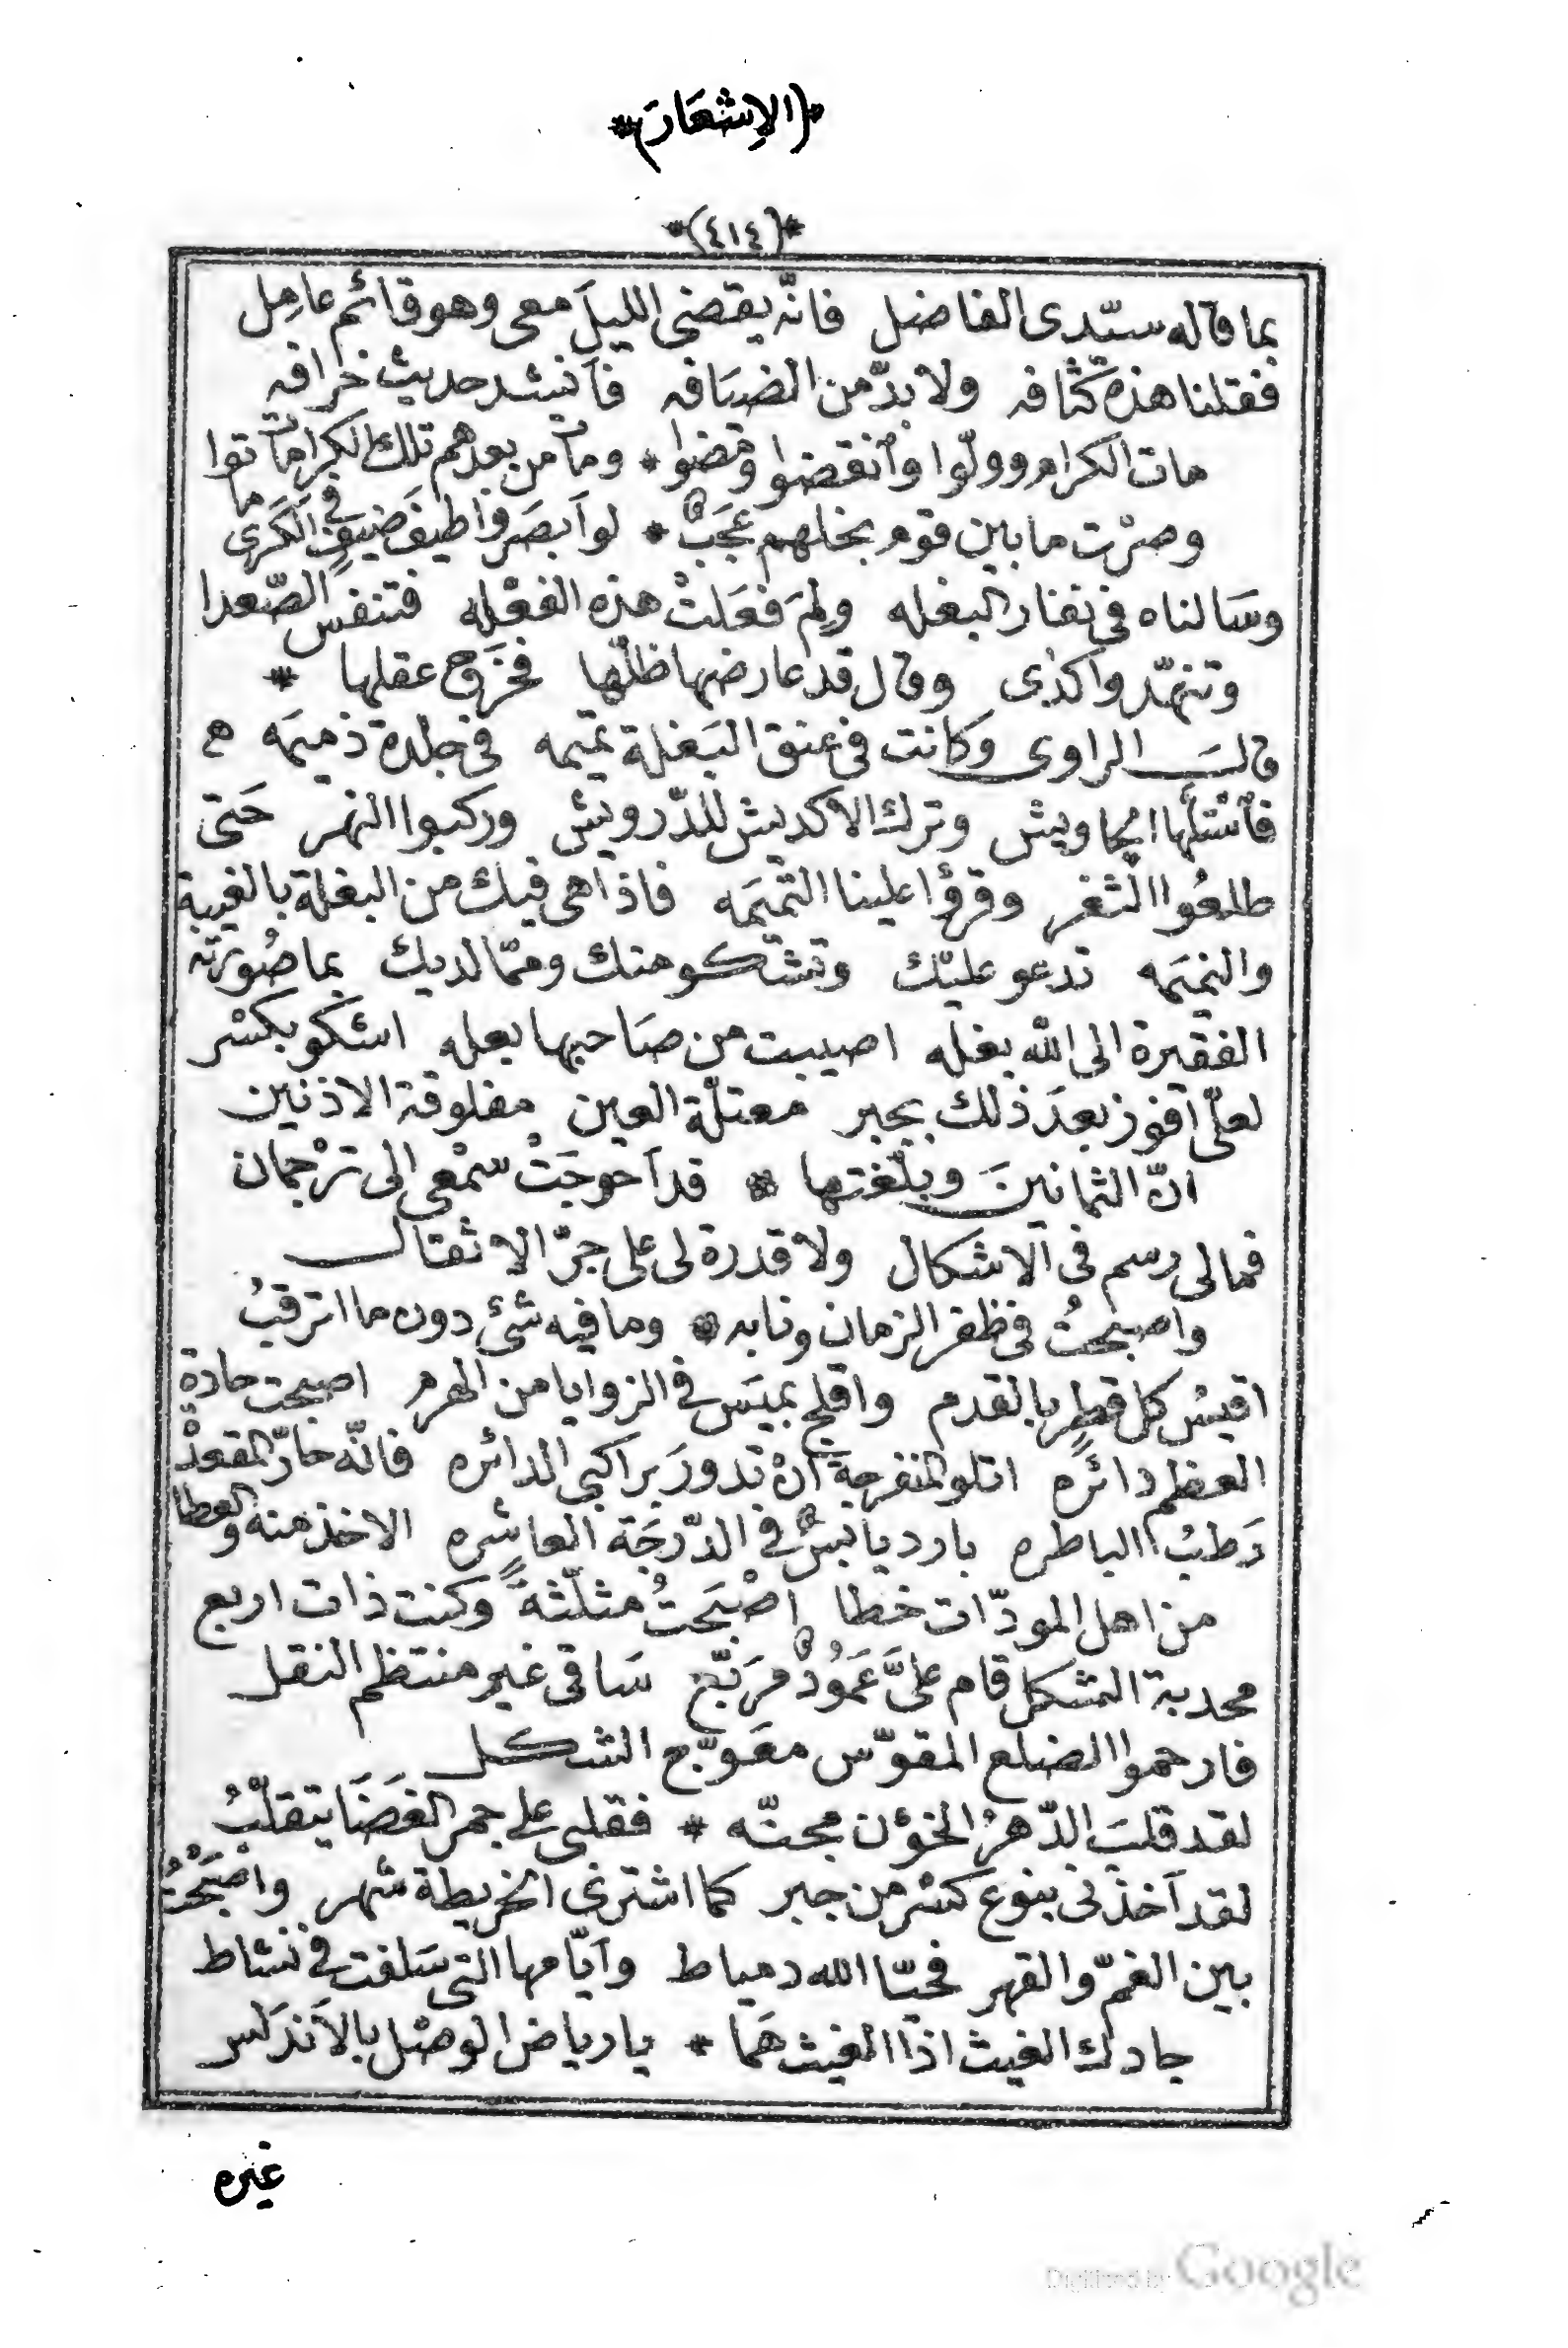 *(الاِشعَار)*
*(٤١٤)*
بما قاله سيّدى الفاضل فانّه يقضى الليلَ معى وهو قائم عامِل
فقلنا هذه كثافه ولا بدّ من الضيَافه فأنشد حديث خرافه
مات الكرام وولّوا وٱنقضوا ومَضوا * ومات من بعدهم تلك الكرامات
وصرْت ما بين قوم بخلهم عجَبٌ * لو اَبصَروا طيفَ ضيفٍ فى الكَرَى ماتوا
وسَالناه فى نفار البغله ولِمَ فعَلتْ هذه الفعْله فتنفس الصّعدا
وتنهّد واكدٰى وقال قد عارضها ظلّها فخرَج عقلها *
قالَ الراوى وكانت فى عنق البَغلة تميمه فى جلدة ذميمَه
فأستلّها الجاويش وترك الاكديش للدّرويش وركبوا النهر حَتى
طلعُوا الثغر وقرؤا علينا التّميَمه فاذا هى فيك من البغلة بالغيبة
والنميَمه تدعو عليْك وتشكو منك وممّا لديك بما صُورَته
الفقيرة الى اللّه بغله اصيبت من صَاحبها بعله اشكو بكسْر
لعلّى افوز بعدَ ذلك بجبر معتلّة العين مفلوقة الاذنين
انّ الثمانينَ وبلّغتها * قد اَحوجَتْ سمْعى الى ترْجمان
فمالى رسم فى الاشكال ولا قدرة لى على جرّ الاثقال
واصبحتُ فى ظفر الزمان ونابه * وما فيه شئ دون ما اترقبُ
اقيسُ كل قطر بالقدم واقلع بميَس فى الزوايا من الهرم اصبحت حادة
العظم دائره اتلو المنفرجة ان تدورَ براكبى الدائره فانّه حارّ المقعدْ
رَطبُ الباطره بارد يابسٌ فى الدّرجَة العاشره الاخذ منه والعطا
من اهل المودّات خطا اصْبَحتُ مثلّثةً وكنت ذات اربع
محدبة الشكل قام علىَّ عَمُودٌ مرَبّع سَاقى غير منتظم النقل
فارحموا الضلع المقوّس معَوّج الشكل
لقد قلبَ الدّهرُ الخؤن مجنّه * فقلبى على جمر الغَضَا يتقلّبُ
لقد اَخذنى بنوع كسْر من جبر كما اشترى الخريطة شهر واصْبَحْتُ
بين الغمّ والقهر فحيّا الله دمياط وايّامها التى سَلفت فى نشاط
جادك الغيث اذا الغيث هَمَا * يا رياض الوصْل بالاَندَلس
غيره
Digitized by Google